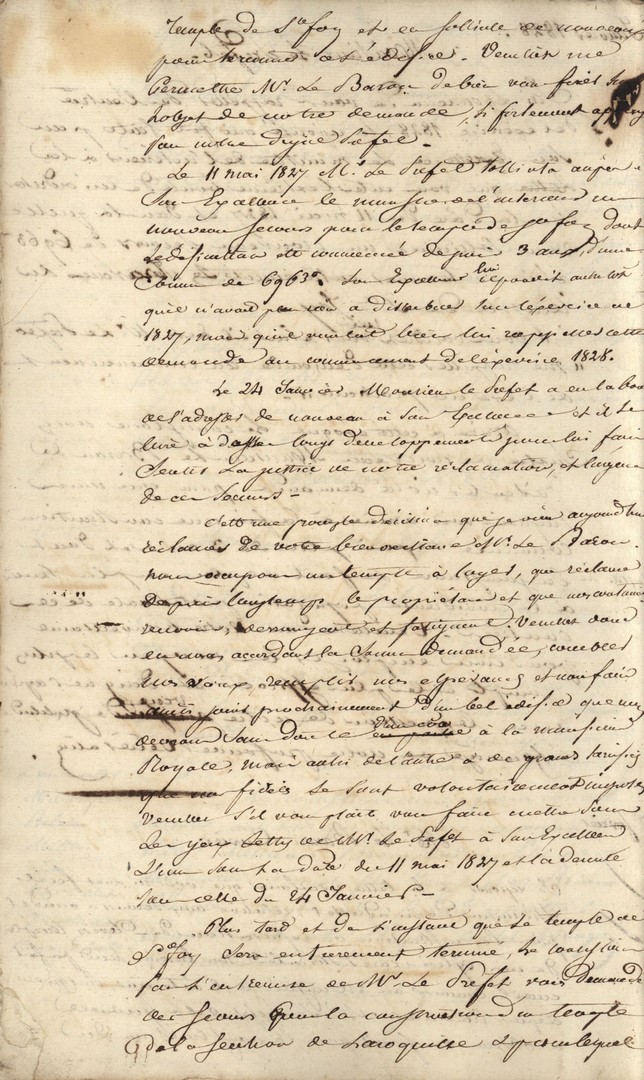 temple de Ste foy et en sollicite de nouveaux
pour terminer cet édifice. Veuillez me
permettre Mr. Le Baron de bien vous fixer sur
l'objet de notre demande, si fortement appuyé
par notre digne Préfet.
Le 11 mai 1827 Mr. Le Préfet sollicita auprès de
Son Excellence le ministre de l'intérieur un
nouveau secours pour le temple de Ste foy dont
l'édification est commencée depuis 3 ans, d'une
somme de 6963f. Son Excellence lui répondit aussitot
qu'il n'avait plus rien à distribuer sur l'éxercice de
1827, mais qu'il voulut bien lui rappeller cette
demande au commencement de l'éxercice 1828.
Le 24 Janvier Monsieur le Préfet a eu la bonté
de s'adresser de nouveau à Son Excellence et il se
livre à d'assez longs développements pour lui faire
sentir la justice de notre réclamation, et l'urgence
de ce secours-
C'est une prompte décision que je viens aujourd'hui
réclamer de votre bienveillance Mr. Le Baron.
nous occupons un temple à loyer, que réclame
depuis longtemps le propriétaire et que nos
dérangent et fatiguent. Veuillez donc
en nous accordant la somme demandée, combler
nos voeux, remplir nos espérances et nous faire
jouir prochainement d'un bel édifice que nous
devrons sans doute d'un coté à la munificence
Royale, mais aussi de l'autre à de grands sacrifices
que nos fidèles se sont volontairement imposés
Veuillez s'il vous plait vous faire mettre sous
les yeux lettres de Mr. Le Préfet à Son Excellence
L'une sous la date du 11 mai 1827 et la dernière
sous celle du 24 Janvier-
Plus tard et dès l'instant que le temple de
Ste foy sera entierement terminé, le consistoire
par l'entremise de Mr. Le Préfet vous demandera
des secours pour la construction d'un temple
de la section de Laroquille et pour lequel